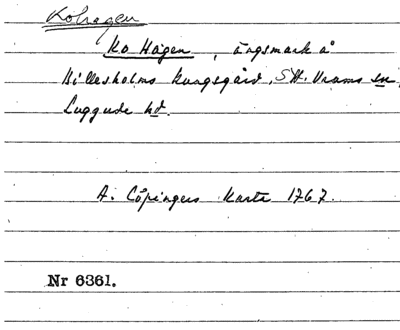 Kohagen
Ko Hagen, ängsmark å
Billesholms kungsgård, SW. Vrams sn,
Luggude hd.
A. Cöpingers karta 1767.
Nr 6361.